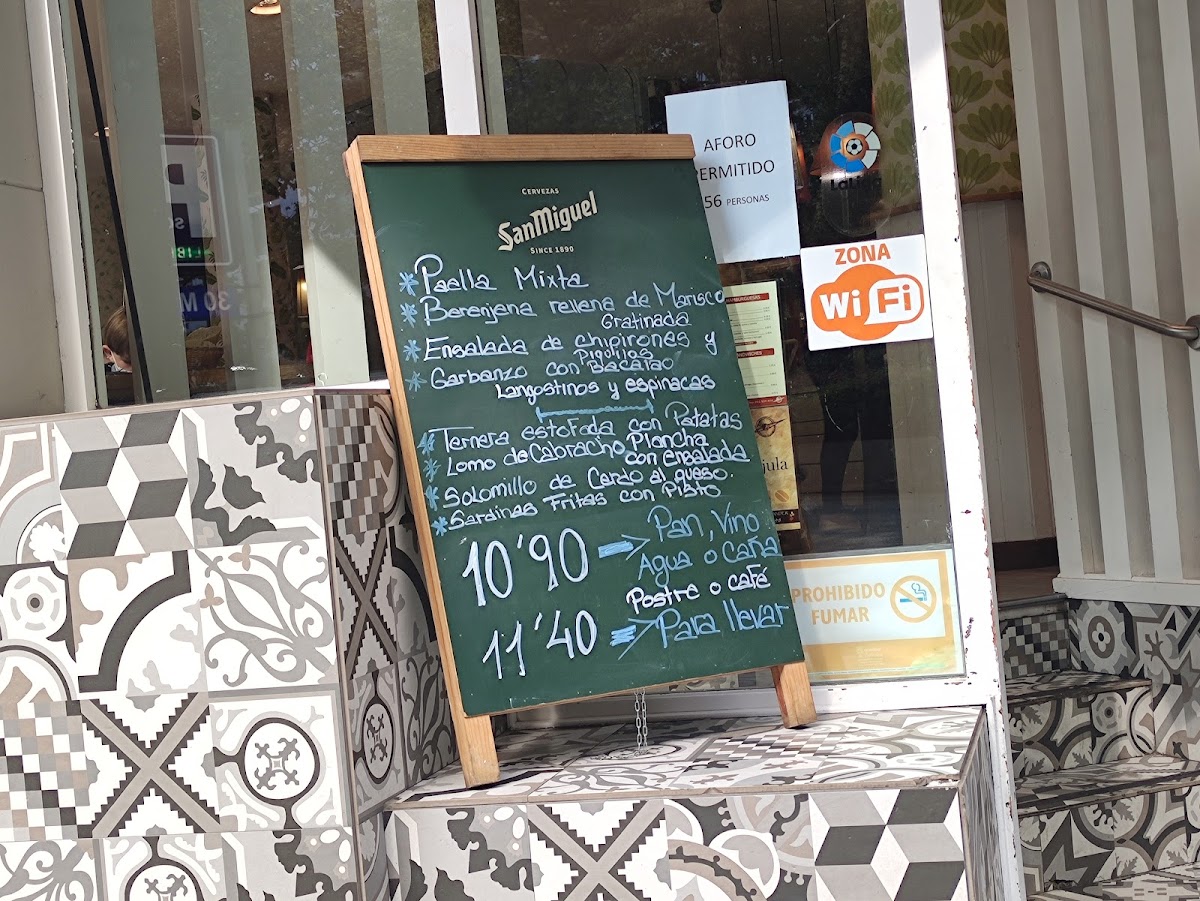 CERVEZAS
SanMiguel
SINCE 1890
* Paella Mixta
* Berenjena rellena de Marisco
Gratinada
* Ensalada de chipirones y
Piquillos
* Garbanzo con Bacalao
Langostinos y espinacas
* Ternera estofada con Patatas
* Lomo de Cabracho Plancha
con ensalada
* Solomillo de Cerdo al queso
* Sardinas Fritas con Pisto
10'90 → Pan, Vino
Agua o Caña
Postre o café
11'40 → Para llevar
AFORO
PERMITIDO
56 PERSONAS
LaLiga
ZONA
WiFi
jula
PROHIBIDO
FUMAR